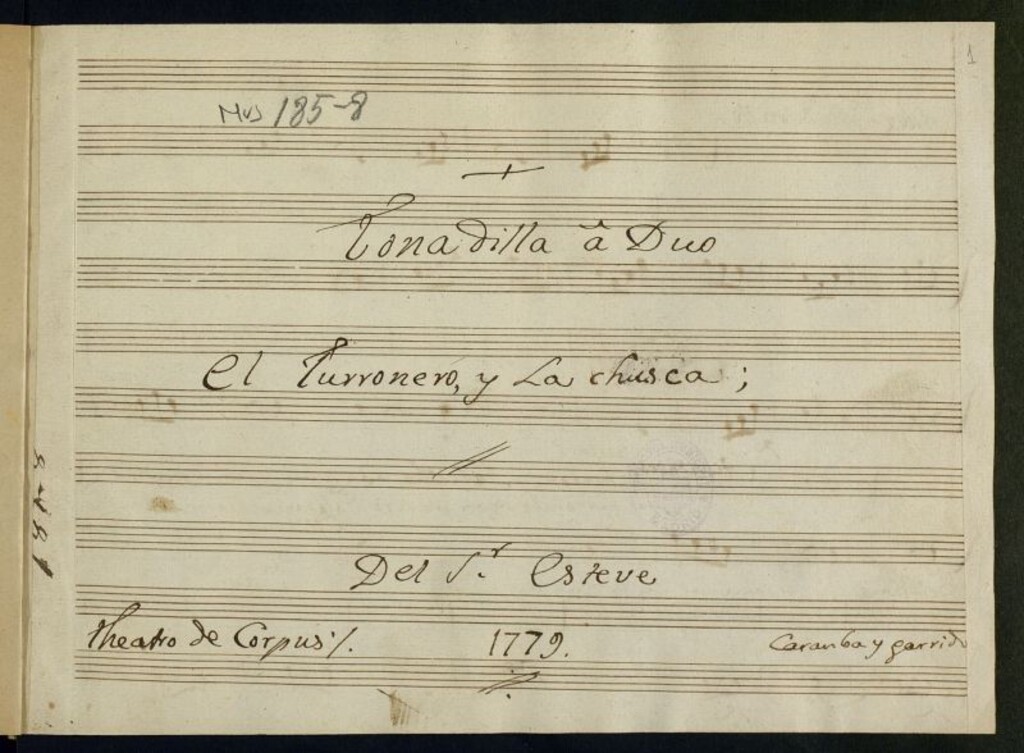 1
Mus 185-8
Tonadilla â Duo
el Turronero, y La chusca;
Del S.r Esteve
theatro de Corpus /.
1779.
Caramba y garrido